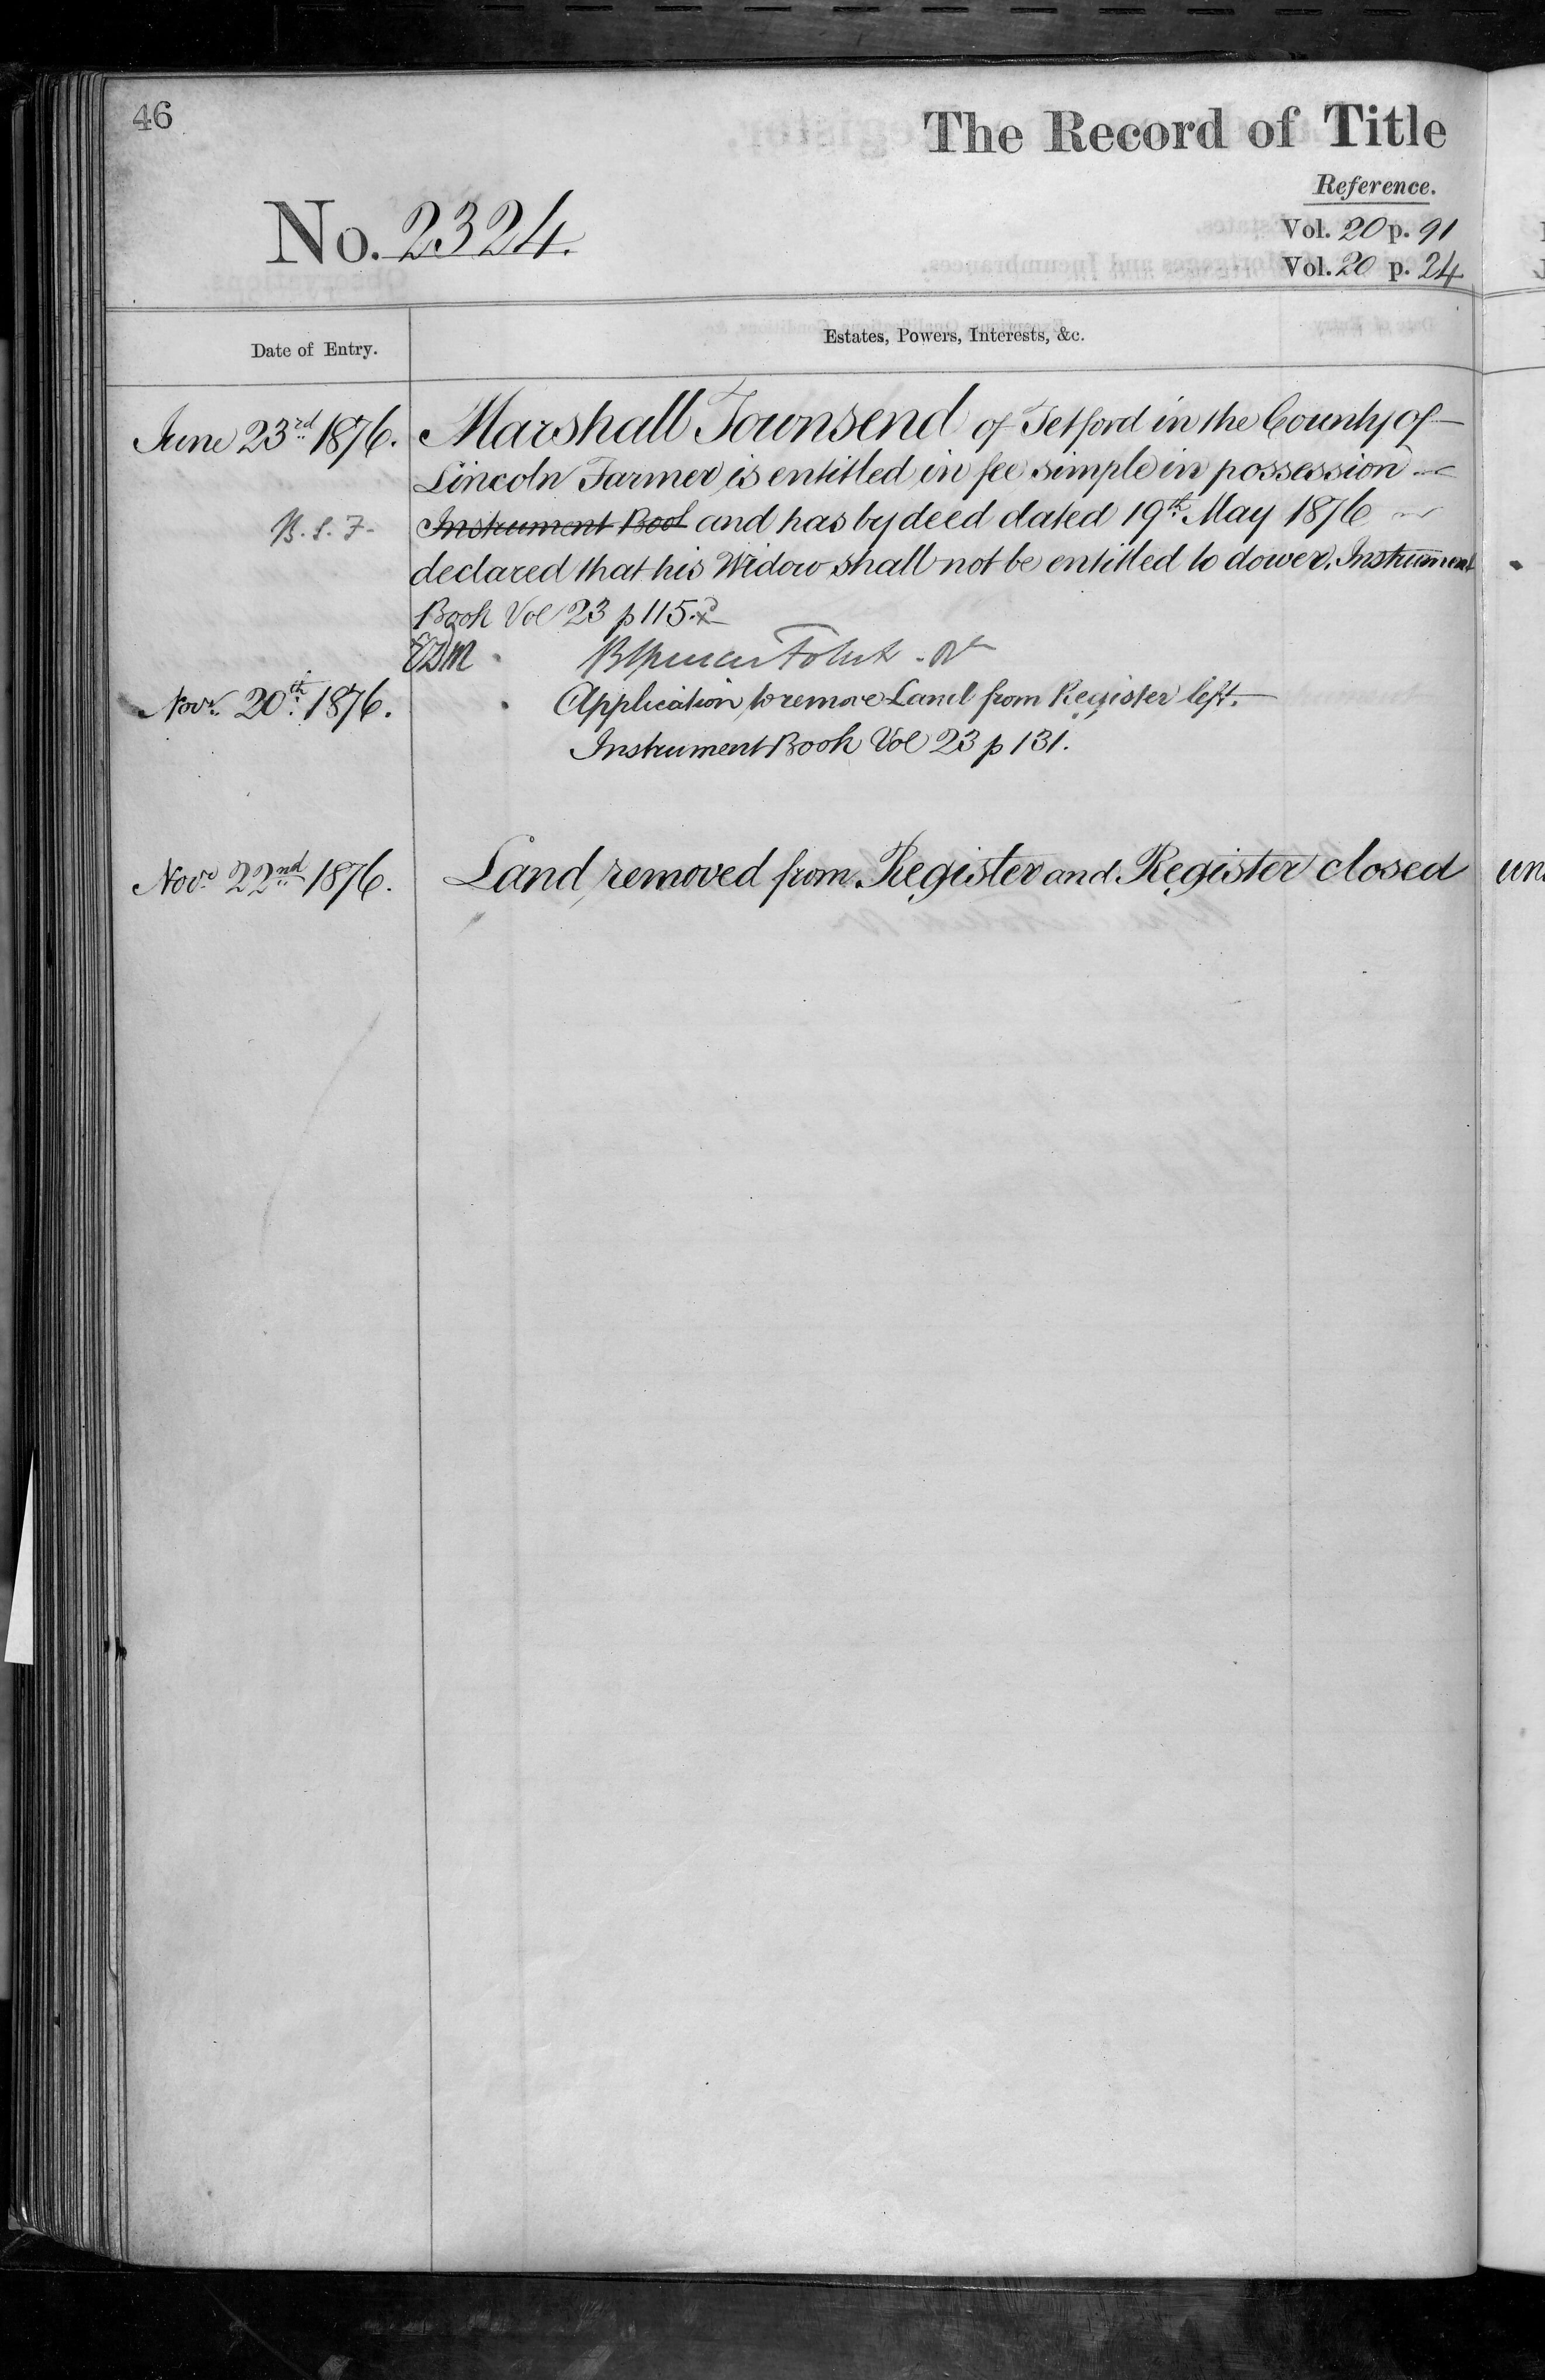 46
The Record of Title
Reference.
No. 2324.
Vol. 20 p. 91
Vol. 20 p. 24
Date of Entry.
Estates, Powers, Interests, &c.
June 23rd 1876.
Marshall Townsend of Tetford in the County of
Lincoln Farmer is entitled in fee simple in possession
B. S. F.
Instrument Book and has by deed dated 19th May 1876
declared that his Widow shall not be entitled to dower. Instrument
Book Vol 23 p 115.
Novr. 20th 1876.
Application to remove Land from Register left.
Instrument Book Vol 23 p 131.
Novr 22nd 1876.
Land removed from Register and Register closed